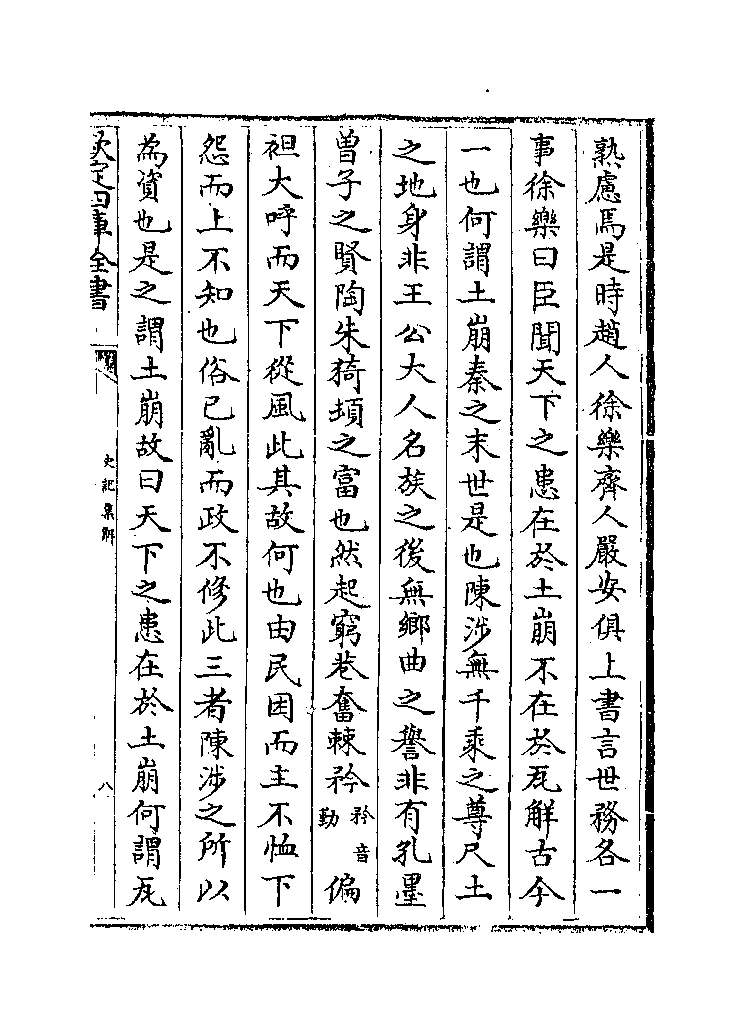 熟慮焉是時趙人徐樂齊人嚴安俱上書言世務各一
事徐樂曰臣聞天下之患在於土崩不在於瓦解古今
一也何謂土崩秦之末世是也陳涉無千乘之尊尺土
之地身非王公大人名族之後無鄉曲之譽非有孔墨
曾子之賢陶朱猗頓之富也然起窮巷奮棘矜矜音勤偏
袒大呼而天下從風此其故何也由民困而主不恤下
怨而上不知也俗已亂而政不修此三者陳涉之所以
為資也是之謂土崩故曰天下之患在於土崩何謂瓦
欽定四庫全書
史記集解
八